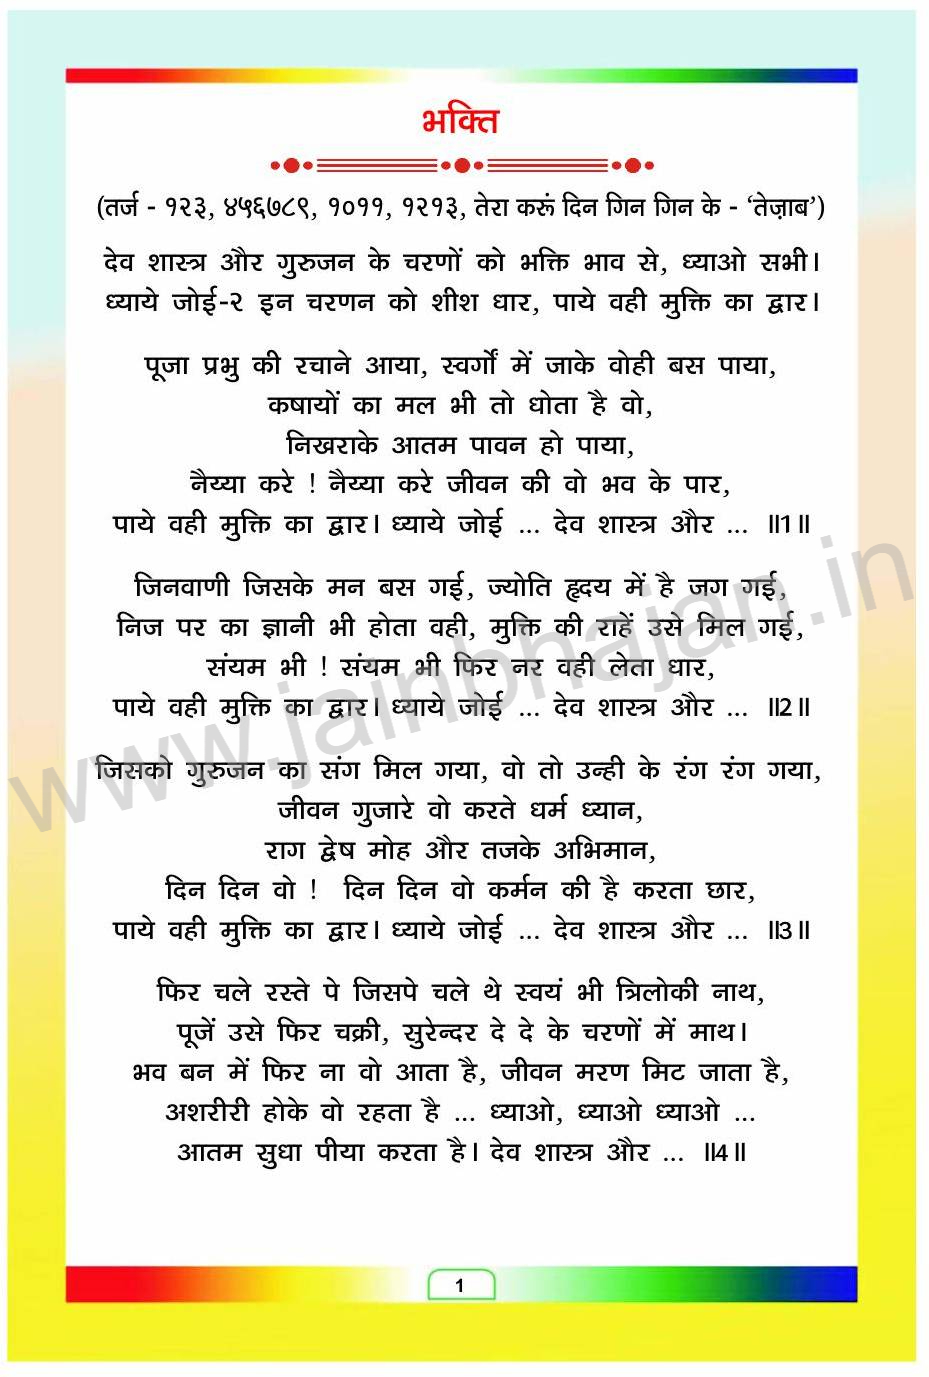 भक्ति
(तर्ज - १२३, ४५६७८९, १०११, १२१३, तेरा करूं दिन गिन गिन के - ‘तेज़ाब’)
देव शास्त्र और गुरुजन के चरणों को भक्ति भाव से, ध्याओ सभी।
ध्याये जोई-२ इन चरणन को शीश धार, पाये वही मुक्ति का द्वार।
पूजा प्रभु की रचाने आया, स्वर्गों में जाके वोही बस पाया,
कषायों का मल भी तो धोता है वो,
निखराके आतम पावन हो पाया,
नैय्या करे ! नैय्या करे जीवन की वो भव के पार,
पाये वही मुक्ति का द्वार। ध्याये जोई ... देव शास्त्र और ... ॥1॥
जिनवाणी जिसके मन बस गई, ज्योति हृदय में है जग गई,
निज पर का ज्ञानी भी होता वही, मुक्ति की राहें उसे मिल गई,
संयम भी ! संयम भी फिर नर वही लेता धार,
पाये वही मुक्ति का द्वार। ध्याये जोई ... देव शास्त्र और ... ॥2॥
जिसको गुरुजन का संग मिल गया, वो तो उन्ही के रंग रंग गया,
जीवन गुजारे वो करते धर्म ध्यान,
राग द्वेष मोह और तजके अभिमान,
दिन दिन वो ! दिन दिन वो कर्मन की है करता छार,
पाये वही मुक्ति का द्वार। ध्याये जोई ... देव शास्त्र और ... ॥3॥
फिर चले रस्ते पे जिसपे चले थे स्वयं भी त्रिलोकी नाथ,
पूजें उसे फिर चक्री, सुरेन्दर दे दे के चरणों में माथ।
भव बन में फिर ना वो आता है, जीवन मरण मिट जाता है,
अशरीरी होके वो रहता है ... ध्याओ, ध्याओ ध्याओ ...
आतम सुधा पीया करता है। देव शास्त्र और ... ॥4॥
www.jainbhajan.in
1